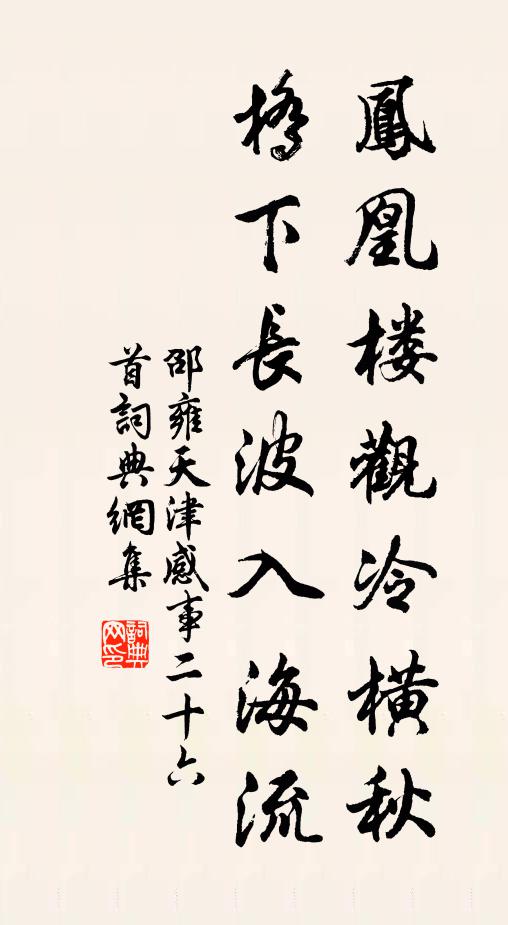 鳳凰楼觀冷橫秋
橋下長波入海流
邵雍天津感事二十六
首詞典網集
詞典网印